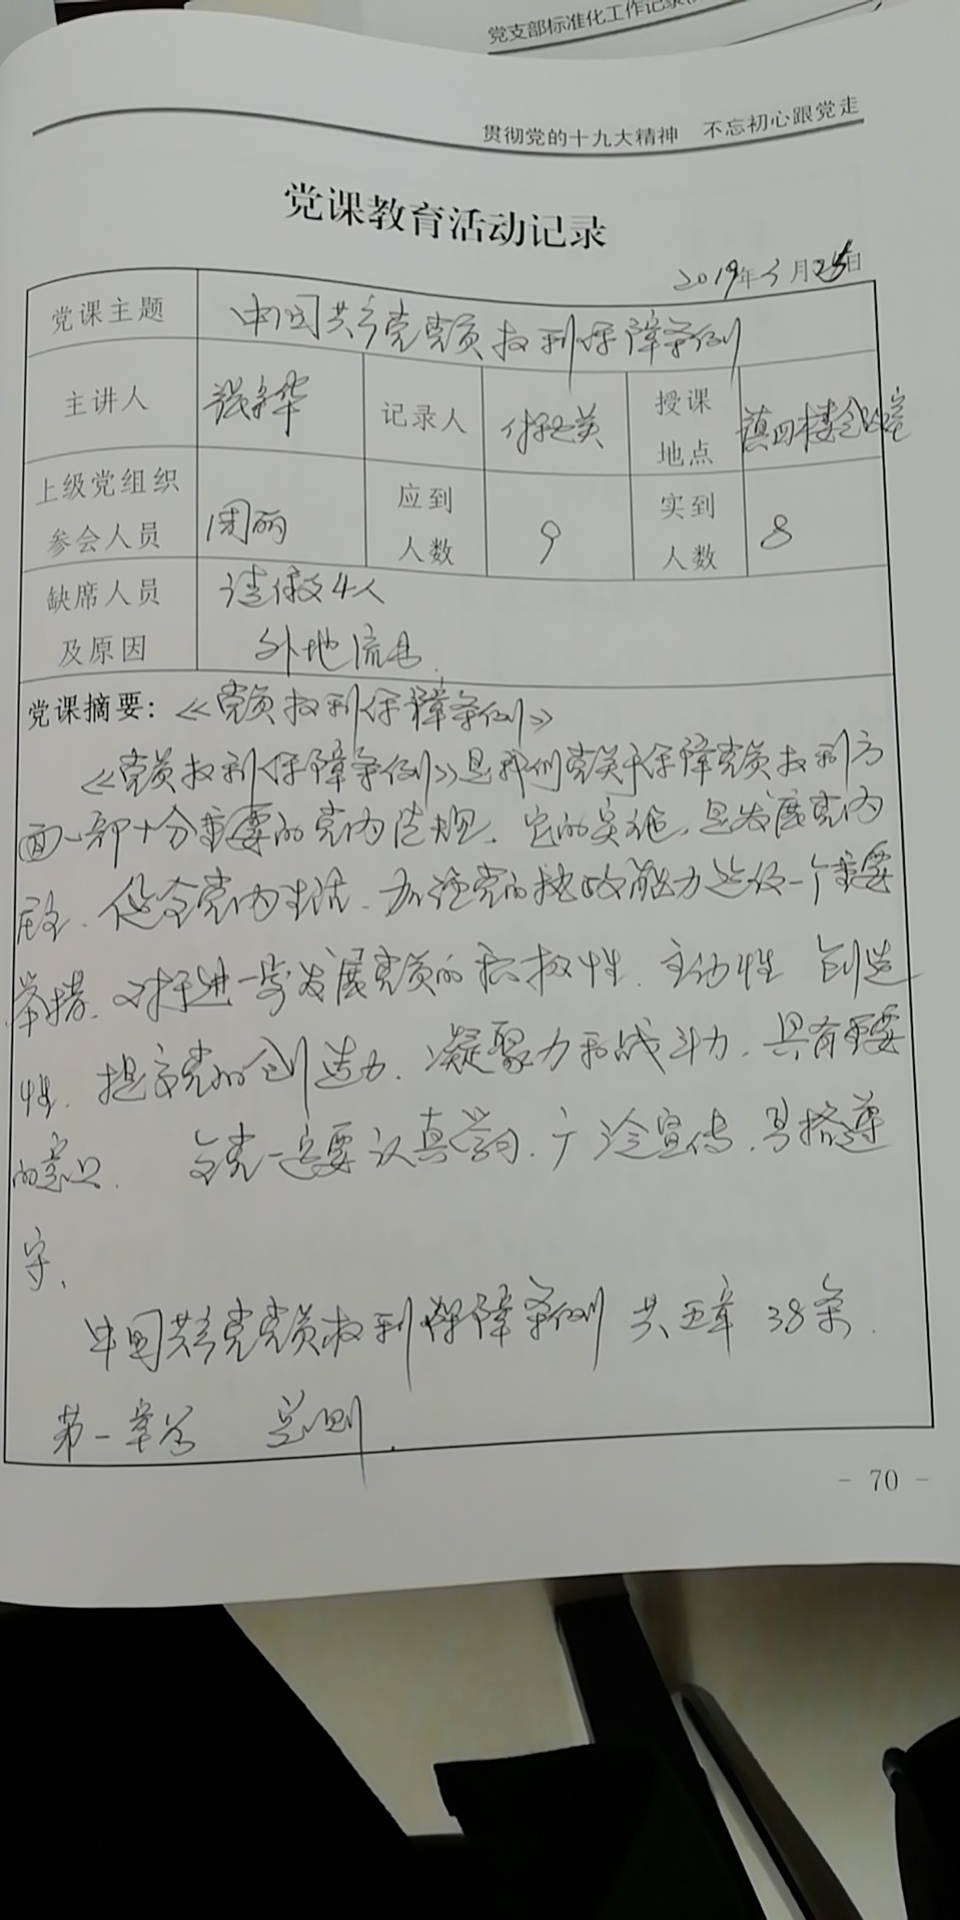 党支部标准化工作记录
贯彻党的十九大精神 不忘初心跟党走
党课教育活动记录
2019年3月25日
党课主题 中国共产党党员权利保障条例
主讲人 记录人 授课地点 镇四楼会议室
上级党组织参会人员 周丽 应到人数 9 实到人数 8
缺席人员及原因
外地流
党课摘要：《党员权利保障条例》
《党员权利保障条例》是我们党关于保障党员权利方
面一部十分重要的党内法规、它的实施，是发展党内
民主、健全党内生活、加强党的执政能力建设一个重要
举措、对于进一步发展党员的积极性、主动性 创造
性、提高党的创造力、凝聚力和战斗力、具有重要
的意义、 全党一定要认真学习、广泛宣传、 格遵
守、
中国共产党党员权利保障条例 共五章 38条
第一章 总则
- 70 -